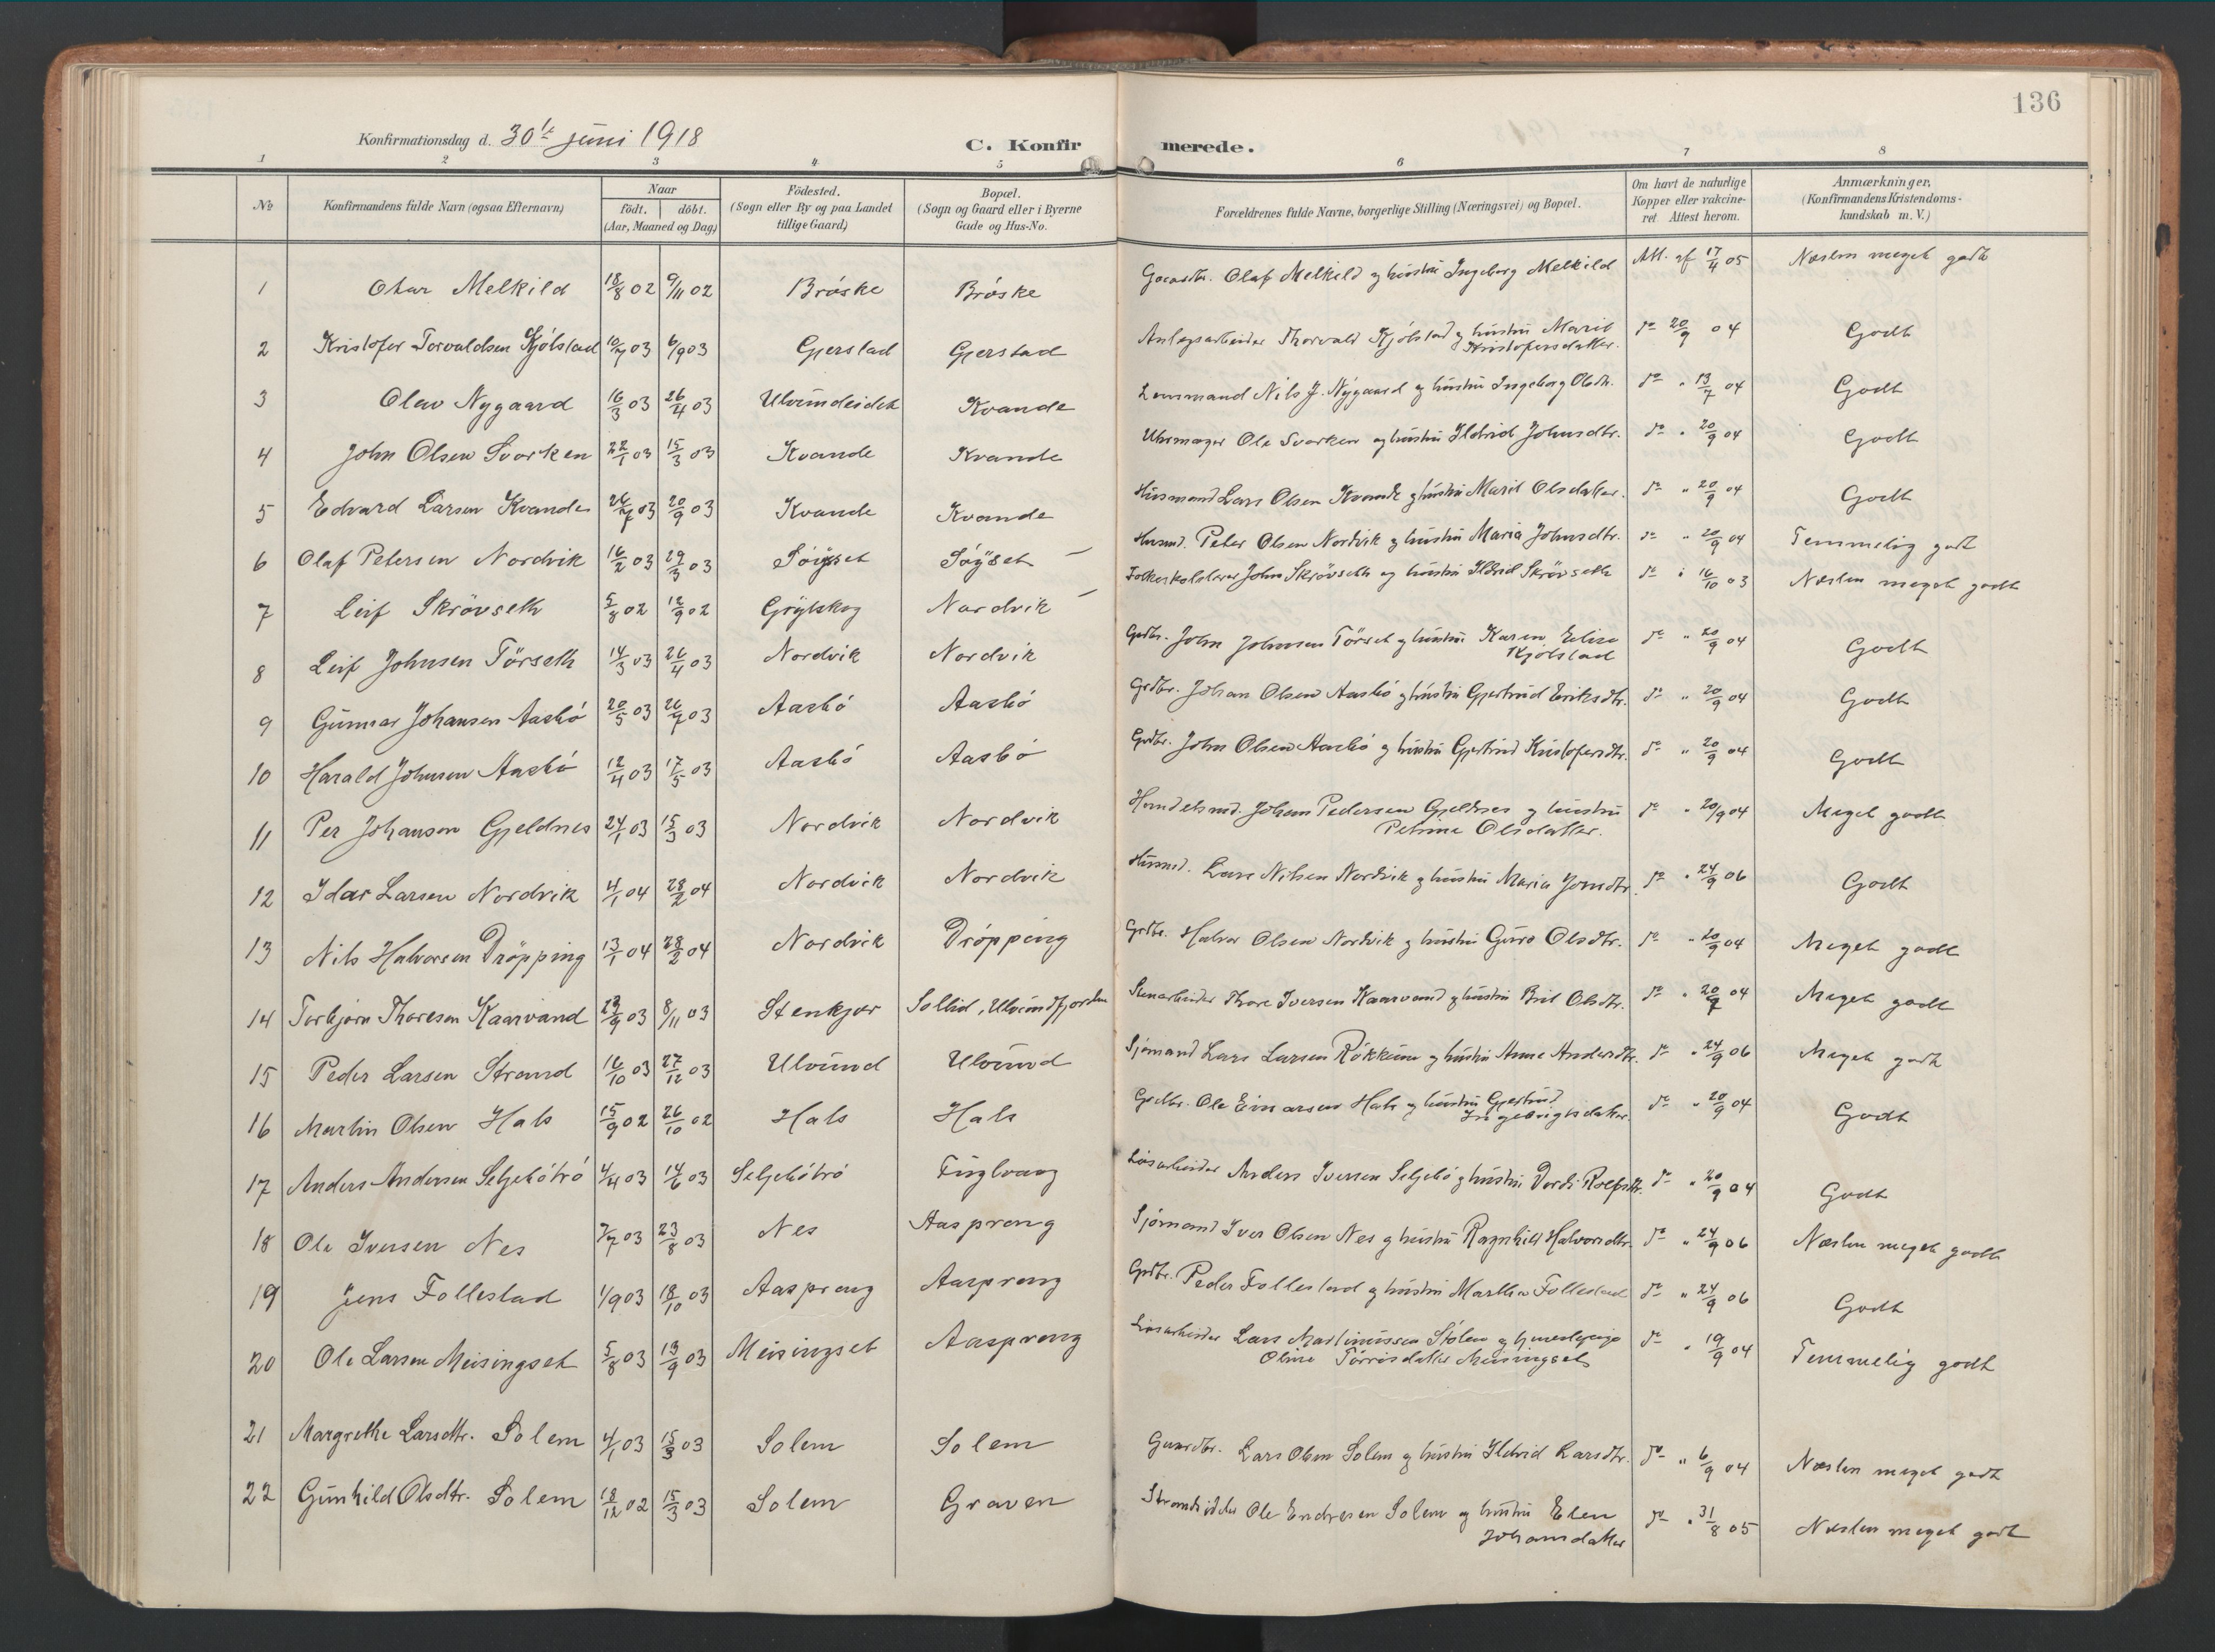 136
Konfirmationsdag d. 30te juni 1918
C. Konfirmerede.
1 2 3 4 5 6 7 8
No
Konfirmandens fulde Navn (ogsaa Efternavn)
Naar
födt. döbt.
(Aar, Maaned og Dag)
Födested.
(Sogn eller By og paa Landet
tillige Gaard)
Bopæl.
(Sogn og Gaard eller i Byerne
Gade og Hus-No.
Forældrenes fulde Navne, borgerlige Stilling (Næringsvei) og Bopæl.
Om havt de naturlige
Kopper eller vakcine-
ret. Attest herom.
Anmærkninger,
(Konfirmandens Kristendoms-
kundskab m. V.)
1 Otar Melkild 18/8 02 9/11 02 Bröske Bröske Gaardbr. Olaf Melkild og hustru Ingeborg Melkild Att. af 17/4 05 Næsten meget godt
2 Kristofer Torvaldsen Kjölstad 10/7 03 6/9 03 Gjerstad Gjerstad Anlægsarbeider Thorvald Kjölstad og hustru Marit
Kristofersdatter. do 20/9 04 Godt
3 Olav Nygaard 16/3 03 26/4 03 Ulvundeidet Kvande Lensmand Nils J. Nygaard og hustru Ingeborg Olsdtr. do " 13/7 04 Godt
4 John Olsen Svorken 22/1 03 15/3 03 Kvande Kvande Uhrmager Ole Svorken og hustru Ildrid Johnsdtr. do " 20/9 04 Godt
5 Edvard Larsen Kvande 26/7 03 20/9 03 Kvande Kvande Husmand Lars Olsen Kvande og hustru Marit Olsdatter. do " 20/9 04 Godt
6 Olaf Petersen Nordvik 16/2 03 29/3 03 Söyset Söyset Husmd. Peter Olsen Nordvik og hustru Maria Johnsdtr. do " 20/9 04 Temmelig godt
7 Leif Skrövseth 5/8 02 12/9 02 Grytskog Nordvik Folkeskolelærer John Skrövseth og hustru Ildrid Skrövseth do " 16/10 03 Næsten meget godt
8 Leif Johnsen Törseth 14/3 03 26/4 03 Nordvik Nordvik Grdbr. John Johnsen Törset og hustru Karen Elise
Kjölstad do " 20/9 04 Godt
9 Gunnar Johansen Aasbö 20/5 03 26/7 03 Aasbö Aasbö Grdbr. Johan Olsen Aasbö og hustru Gjertrud Eriksdtr. do " 20/9 04 Godt
10 Harald Johnsen Aasbö 12/4 03 17/5 03 Aasbö Aasbö Grdbr. John Olsen Aasbö og hustru Gjertrud Kristofersdtr. do " 20/9 04 Godt
11 Per Johansen Gjeldnes 24/1 03 15/3 03 Nordvik Nordvik Handelsmd. Johan Pedersen Gjeldnes og hustru
Petrine Olsdatter. do " 20/9 04 Meget godt
12 Idar Larsen Nordvik 4/1 04 28/2 04 Nordvik Nordvik Husmd. Lars Nilsen Nordvik og hustru Maria Jonsdtr. do " 24/9 06 Godt
13 Nils Halvorsen Dröpping 13/1 04 28/2 04 Nordvik Dröpping Grdbr. Halvor Olsen Nordvik og hustru Guro Olsdtr. do " 20/9 04 Meget godt
14 Torbjörn Thoresen Kaarvand 23/9 03 8/11 03 Stenkjær Sollid, Ulvundfjorden Stenarbeider Thore Iversen Kaarvand og hustru Brit Olsdtr. do " 20/9 04 Meget godt
15 Peder Larsen Strand 16/10 03 27/12 03 Ulvund Ulvund Sjömand Lars Larsen Rökkum og hustru Anne Andersdtr. do " 24/9 06 Meget godt
16 Martin Olsen Hals 15/9 02 26/10 02 Hals Hals Grdbr. Ole Einarsen Hals og hustru Gjertrud
Ingebrigtsdatter. do " 20/9 04 Godt
17 Anders Andersen Seljebötrö 4/4 03 14/6 03 Seljebötrö Fuglvaag Lösarbeider Anders Iversen Seljebö og hustru Dordi Rolfsdtr. do " 20/9 04 Godt
18 Ole Iversen Nes 7/7 03 23/8 03 Nes Aasprong Sjömand Iver Olsen Nes og hustru Ragnhild Halvorsdtr. do " 24/9 06 Næsten meget godt
19 Jens Follestad 1/9 03 18/10 03 Aasprong Aasprong Grdbr. Peder Follestad og hustru Martha Follestad do " 24/9 06 Godt
20 Ole Larsen Meisingset 5/8 03 13/9 03 Meisingset Aasprong Lösarbeider Lars Martinussen Stölen og
Oline Törrisdatter Meisingset do " 19/9 04 Temmelig godt
21 Margrethe Larsdtr. Solem 4/1 03 15/3 03 Solem Solem Gaardbr. Lars Olsen Solem og hustru Ildrid Larsdtr. do " 6/9 04 Næsten meget godt
22 Gunhild Olsdtr. Solem 18/12 02 15/3 03 Solem Graven Strandsidder Ole Endresen Solem og hustru Elen
Johansdatter do " 31/8 05 Næsten meget godt